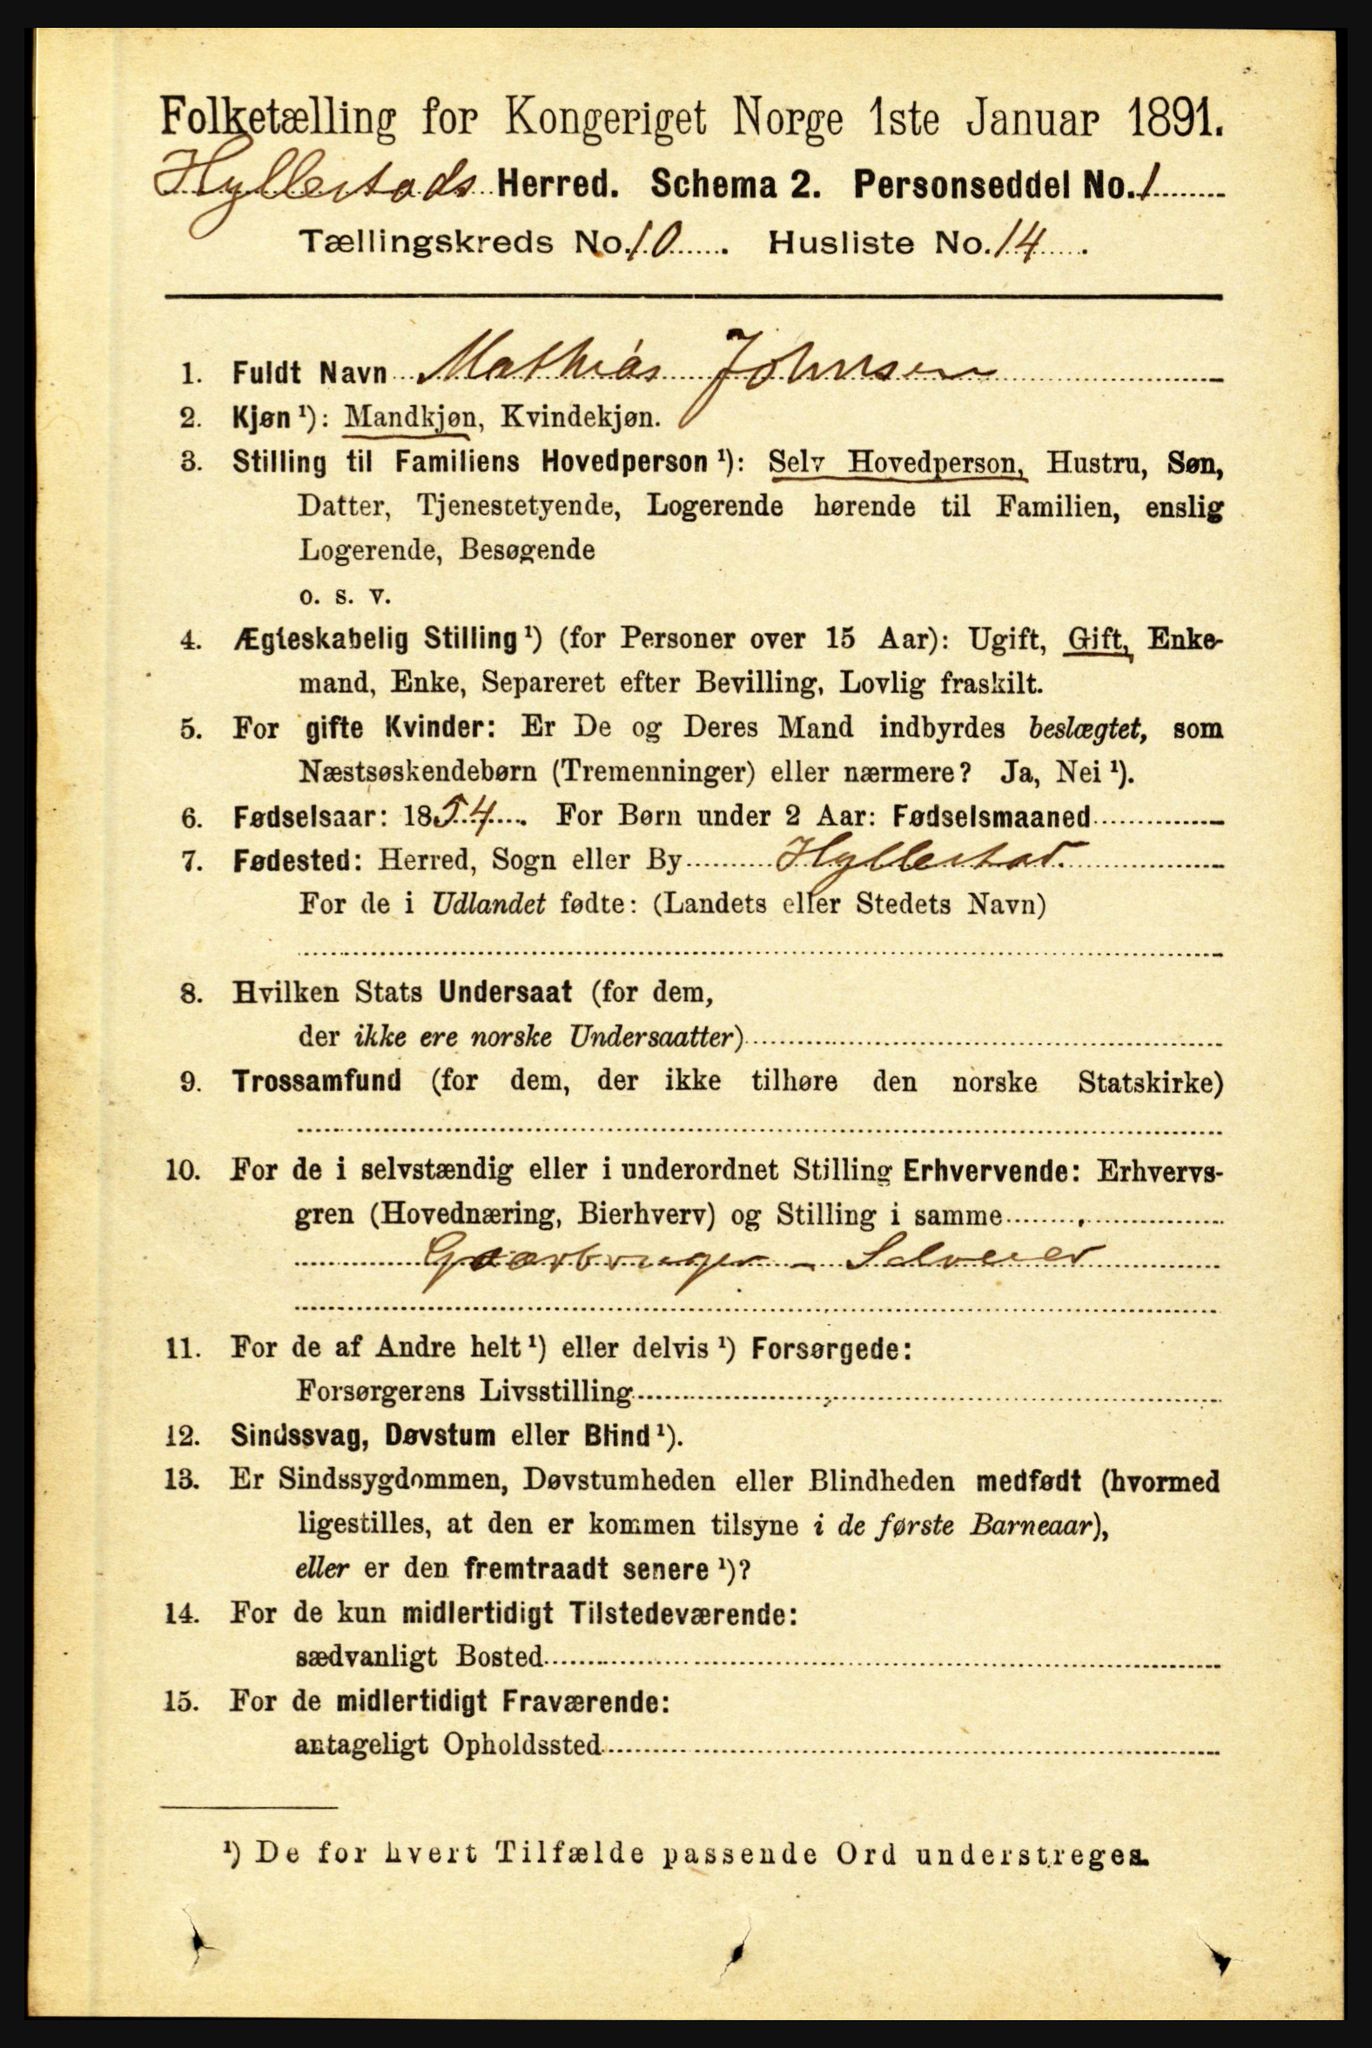 Folketælling for Kongeriget Norge 1ste Januar 1891.
Hyllestads Herred. Schema 2. Personseddel No. 1
Tællingskreds No. 10. Husliste No. 14.
1. Fuldt Navn Mathias Johnsen
2. Kjøn ¹): Mandkjøn, Kvindekjøn.
3. Stilling til Familiens Hovedperson ¹): Selv Hovedperson, Hustru, Søn,
Datter, Tjenestetyende, Logerende hørende til Familien, enslig
Logerende, Besøgende
o. s. v.
4. Ægteskabelig Stilling ¹) (for Personer over 15 Aar): Ugift, Gift, Enke-
mand, Enke, Separeret efter Bevilling, Lovlig fraskilt.
5. For gifte Kvinder: Er De og Deres Mand indbyrdes beslægtet, som
Næstsøskendebørn (Tremenninger) eller nærmere? Ja, Nei ¹).
6. Fødselsaar: 1854. For Børn under 2 Aar: Fødselsmaaned
7. Fødested: Herred, Sogn eller By Hyllestad.
For de i Udlandet fødte: (Landets eller Stedets Navn)
8. Hvilken Stats Undersaat (for dem,
der ikke ere norske Undersaatter)
9. Trossamfund (for dem, der ikke tilhøre den norske Statskirke)
10. For de i selvstændig eller i underordnet Stilling Erhvervende: Erhvervs-
gren (Hovednæring, Bierhverv) og Stilling i samme
Gaarbruger - Selveier
11. For de af Andre helt ¹) eller delvis ¹) Forsørgede:
Forsørgerens Livsstilling
12. Sindssvag, Døvstum eller Blind ¹).
13. Er Sindssygdommen, Døvstumheden eller Blindheden medfødt (hvormed
ligestilles, at den er kommen tilsyne i de første Barneaar),
eller er den fremtraadt senere ¹)?
14. For de kun midlertidigt Tilstedeværende:
sædvanligt Bosted
15. For de midlertidigt Fraværende:
antageligt Opholdssted
¹) De for hvert Tilfælde passende Ord understreges.